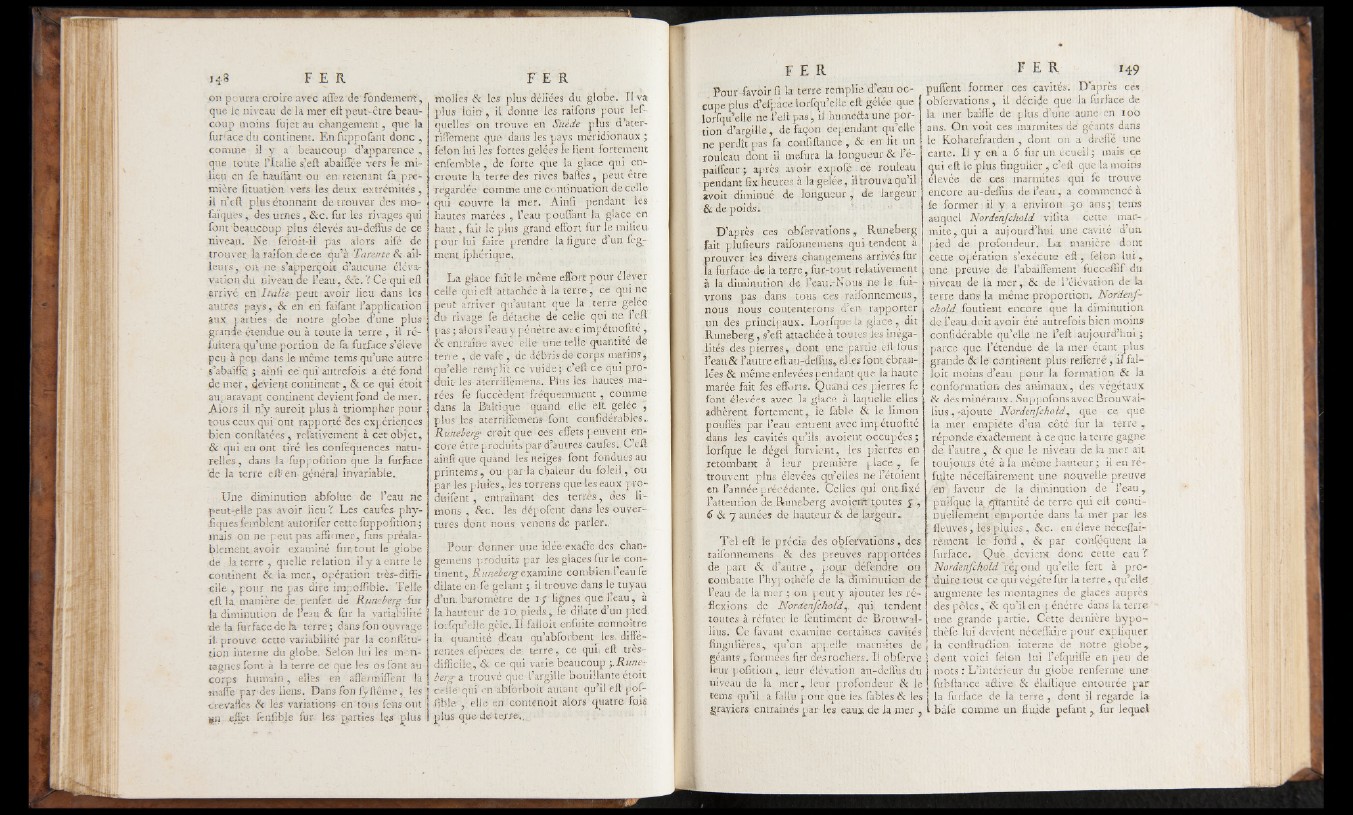 148 F E R
on pourra croire avec assez de fondement,
que le niveau de la mer est peut-être beau-
coup moins sujet au changement, que la
surface du continent. En supposant donc,
comme il y a beaucoup d'apparence,
que toute l'Italie s'est abaissée vers le mi-
lieu en se haussant ou en retenant sa pre-
mière situation vers les deux extrémités,
il n'est plus étonnant de trouver des mo-
saïques, des urnes, &c. sur les rivages qui
sont beaucoup plus élevés au-dessus de ce
niveau. Ne seroit-il pas alors aisé de
trouver la raison de ce qu'à Tarente & ail-
leurs, on ne s'apperçoit d'aucune éléva-
vation du niveau de l'eau, &c. ? Ce qui est
arrivé en Italie peut avoir lieu dans les
autres pays, & en en faisant l'application
aux parties de notre globe d'une plus
grande étendue ou à toute la terre, il ré-
sultera qu'une portion de sa surface s'éleve
peu à peu dans le même tems qu'une autre
s'abaisse ; ainsi ce qui autrefois a été fond
de mer, devient continent, & ce qui étoit
auparavant continent devient fond de mer.
Alors il n'y auroit plus à triompher pour
tous ceux qui ont rapporté des expériences
bien constatées, relativement à cet objet,
& qui en ont tiré les conséquences natu-
relles, dans la supposition que la surface
de la terre est en général invariable.
Une diminution absolue de l'eau ne
peut-elle pas avoir lieu ? Les causes phy-
siques semblent autoriser cette supposition ;
mais on ne peut pas affirmer, sans préala-
blement avoir examiné sur-tout le globe
de la terre, quelle relation il y a entre le
continent & la mer, opération très-diffi-
cile, pour ne pas dire impossible. Telle
est la manière de penser de Runeberg sur
la diminution de l'eau & sur la variabilité
de la surface de la terre ; dans son ouvrage
il prouve cette variabilité par la constitu-
tion interne du globe. Selon lui les mon-
tagnes sont à la terre ce que les os sont au
corps humain, elles en affermissent la
masse par des liens. Dans son système, les
crevasses & les variations en tous sens ont
un effet sensible sur les parties les plus
F E R
molles & les plus déliées du globe. Il va
plus loin, il donne les raisons pour les-
quelles on trouve en Suède plus d'ater-
rissement que dans les pays méridionaux ;
selon lui les fortes gelées se lient fortement
ensemble, de sorte que la glace qui en-
croute la terre des rives basses, peut être
regardée comme une continuation de celle
qui couvre la mer. Ainsi pendant les
hautes marées, l'eau poussant la glace en
haut, fait le plus grand effort sur le milieu
pour lui faire prendre la figure d'un seg-
ment sphérique.
La glace fait le même effort pour élever
celle qui est attachée à la terre, ce qui ne
peut arriver qu'autant que la terre gelée
du rivage se détache de celle qui ne l'est
pas ; alors l'eau y pénètre avec impétuosité,
& entraîne avec elle une telle quantité de
terre, de vase, de débris de corps marins,
qu'elle remplit ce vuide ; c'est ce qui pro-
duit les aterrissemens. Plus les hautes ma-
rées se succèdent fréquemment, comme
dans la Baltique quand elle est gelée,
plus les aterrissemens sont considérables.
Runeberg croit que ces effets peuvent en-
core être produits par d'autres causes. C'est
ainsi que quand les neiges sont fondues au
printems, ou par la chaleur du soleil, ou
par les pluies, les torrens que les eaux pro-
duisent, entraînant des terres, des li-
mons, &c. les déposent dans les ouver-
tures dont nous venons de parler.
Pour donner une idée exacte des chan-
gemens produits par les glaces sur le con-
tinent, Runeberg examine combien l'eau se
dilate en se gelant ; il trouve dans le tuyau
d'un baromètre de 15 lignes que l'eau, à
la hauteur de 10 pieds, se dilate d'un pied
lorsqu'elle gèle. Il falloit ensuite connoître
la quantité d'eau qu'absorbent les diffé-
rentes espèces de terre, ce qui est très-
difficile, & ce qui varie beaucoup ; Rune-
berg a trouvé que l'argille bouillante étoit
celle qui en absorboit autant qu'il est pos-
sible, elle en contenoit alors quatre fois
plus que de terre.
F E R
Pour savoir si la terre remplie d'eau oc-
cupe plus d'espace lorsqu'elle est gelée que
lorsqu'elle ne l'est pas, il humecta une por-
tion d'argille, de façon cependant qu'elle
ne perdît pas sa consistance, & en fit un
rouleau dont il mesura la longueur & l'é-
paisseur ; après avoir exposé ce rouleau
pendant six heures à la gelée, il trouva qu'il
avoit diminué de longueur, de largeur
& de poids.
D'après ces observations, Runeberg
fait plusieurs raisonnemens qui tendent à
prouver les divers changemens arrivés sur
la surface de la terre, sur-tout relativement
à la diminution de l'eau. Nous ne le sui-
vrons pas dans tous ces raisonnemens,
nous nous contenterons d'en rapporter
un des principaux. Lorsque la glace, dit
Runeberg, s'est attachée à toutes les inéga-
lités des pierres, dont une partie est sous
l'eau & l'autre est au-dessus, elles sont ébran-
lées & même enlevées pendant que la haute
marée fait ses efforts. Quand ces pierres se
sont élevées avec la glace à laquelle elles
adhèrent fortement, le sable & le limon
poussés par l'eau entrent avec impétuosité
dans les cavités qu'ils avoient occupées ;
lorsque le dégel survient, les pierres en
retombant à leur première place, se
trouvent plus élevées qu'elles ne l'étoient
en l'année précédente. Celles qui ont fixé
l'attention de Runeberg avoient toutes 5,
6 & 7 aunées de hauteur & de largeur.
Tel est le précis des observations, des
raisonnemens & des preuves rapportées
de part & d'autre, pour défendre ou
combatte l'hypothèse de la diminution de
l'eau de la mer ; on peut y ajouter les ré-
flexions de Nordenschold, qui tendent
toutes à réfuter le sentiment de Brouwal-
lius. Ce savant examine certaines cavités
singulieres, qu'on appelle marmites de
géants, formées sur des rochers. Il observe
leur position, leur élévation au-dessus du
niveau de la mer, leur profondeur & le
tems qu'il a fallu pour que les sables & les
graviers entraînés par les eaux de la mer,
F E R 149
pussent former ces cavités. D'après ces
observations, il décide que la surface de
la mer baisse de plus d'une aune en 100
ans. On voit ces marmites de géants dans
le Koharefrarden, dont on a dressé une
carte. Il y en a 6 sur un écueil ; mais ce
qui est le plus singulier, c'est que la moins
élevée de ces marmites qui se trouve
encore au-dessus de l'eau, a commencé à
se former il y a environ 30 ans ; tems
auquel Nordenschold visita cette mar-
mite, qui a aujourd'hui une cavité d'un
pied de profondeur. La manière dont
cette opération s'exécute est, selon lui,
une preuve de l'abaissement successif du
niveau de la mer, & de l'élévation de la
terre dans la même proportion. Nordens-
chold soutient encore que la diminution
de l'eau doit avoir été autrefois bien moins
considérable qu'elle ne l'est aujourd'hui ;
parce que l'étendue de la mer étant plus
grande & le continent plus resserré, il fal-
loit moins d'eau pour la formation & la
conformation des animaux, des végétaux
& des minéraux. Supposons avec Brouwal-
lius, ajoute Nordenschold, que ce que
la mer empiète d'un côté sur la terre,
réponde exactement à ce que la terre gagne
de l'autre, & que le niveau de la mer ait
toujours été à la même hauteur ; il en ré-
sulte nécessairement une nouvelle preuve
en faveur de la diminution de l'eau,
puisque la quantité de terre qui est conti-
nuellement emportée dans la mer par les
fleuves, les pluies, &c. en éleve nécessai-
rement le fond, & par conséquent la
surface. Que devient donc cette eau ?
Nordenschold répond qu'elle sert à pro-
duire tout ce qui végète sur la terre, qu'elle
augmente les montagnes de glaces auprès
des pôles, & qu'il en pénètre dans la terre
une grande partie. Cette dernière hypo-
thèse lui devient nécessaire pour expliquer
la construction interne de notre globe,
dont voici selon lui l'esquisse en peu de
mots : L'intérieur du globe renferme une
substance active & élastique entourée par
la surface de la terre, dont il regarde la
base comme un fluide pesant, sur lequel